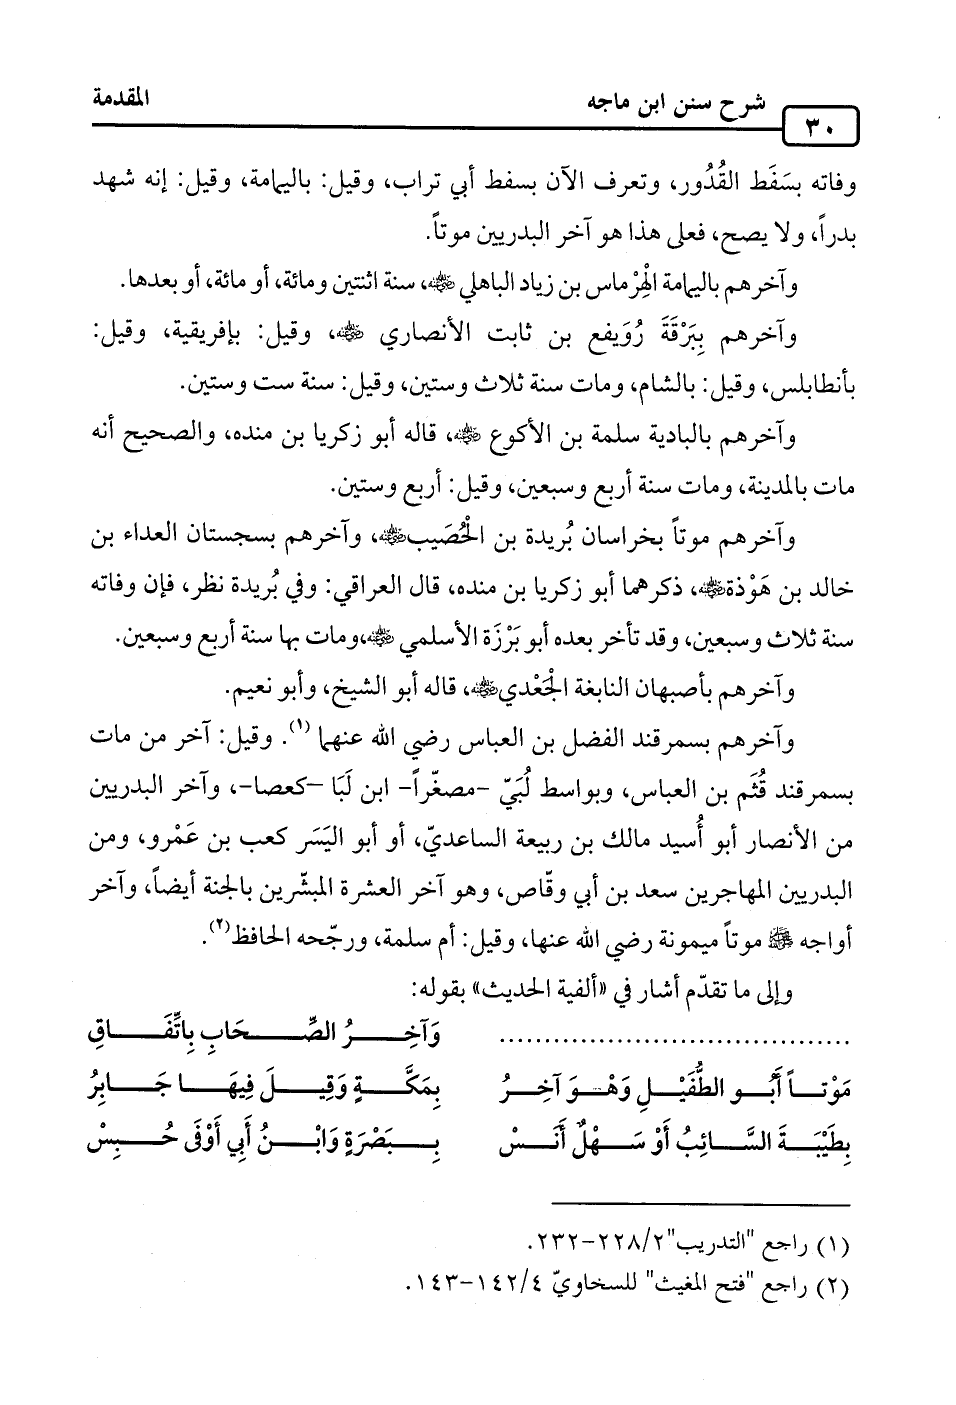 شرح سنن ابن ماجه المقدمة
٣٠
وفاته بسَفَط القُدُور، وتعرف الآن بسفط أبي تراب، وقيل: باليمامة، وقيل: إنه شهد
بدراً، ولا يصح، فعلى هذا هو آخر البدريين موتاً.
وآخرهم باليمامة الهِرْماس بن زياد الباهلي ﷺ، سنة اثنتين ومائة، أو مائة، أو بعدها.
وآخرهم بِبَرْقَةَ رُوَيفع بن ثابت الأنصاري ﷺ، وقيل: بإفريقية، وقيل:
بأنطابلس، وقيل: بالشام، ومات سنة ثلاث وستين، وقيل: سنة ست وستين.
وآخرهم بالبادية سلمة بن الأكوع ﷺ، قاله أبو زكريا بن منده، والصحيح أنه
مات بالمدينة، ومات سنة أربع وسبعين، وقيل: أربع وستين.
وآخرهم موتاً بخراسان بُريدة بن الحُصَيب، وآخرهم بسجستان العداء بن
خالد بن هَوْذة، ذكرهما أبو زكريا بن منده، قال العراقي: وفي بُريدة نظر، فإن وفاته
سنة ثلاث وسبعين، وقد تأخر بعده أبو بَرْزَة الأسلمي، ومات بها سنة أربع وسبعين.
وآخرهم بأصبهان النابغة الجَعْدي، قاله أبو الشيخ، وأبو نعيم.
وآخرهم بسمرقند الفضل بن العباس رضي الله عنهما (١). وقيل: آخر من مات
بسمرقند قُثَم بن العباس، وبواسط لُبَيّ -مصغّراً- ابن لَبَا -كعصا-، وآخر البدريين
من الأنصار أبو أُسيد مالك بن ربيعة الساعديّ، أو أبو اليَسَر كعب بن عَمْرو، ومن
البدريين المهاجرين سعد بن أبي وقّاص، وهو آخر العشرة المبشّرين بالجنة أيضاً، وآخر
أواجه ﷺ موتاً ميمونة رضي الله عنها، وقيل: أم سلمة، ورجّحه الحافظ(٢).
وإلى ما تقدّم أشار في «ألفية الحديث» بقوله:
....................................... وَآخِرُ الصِّحَابِ بِاتِّفَاقِ
مَوْتاً أَبُو الطُّفَيْلِ وَهْوَ آخِرُ بِمَكَّةٍ وَقِيلَ فِيهَا جَابِرُ
بِطَيْبَةَ السَّائِبُ أَوْ سَهْلٌ أَنَسْ بِبَصْرَةٍ وَابْنُ أَبي أَوْفَى حُبِسْ
(١) راجع "التدريب" ٢/٢٢٨-٢٣٢.
(٢) راجع "فتح المغيث" للسخاويّ ٤/١٤٢-١٤٣.